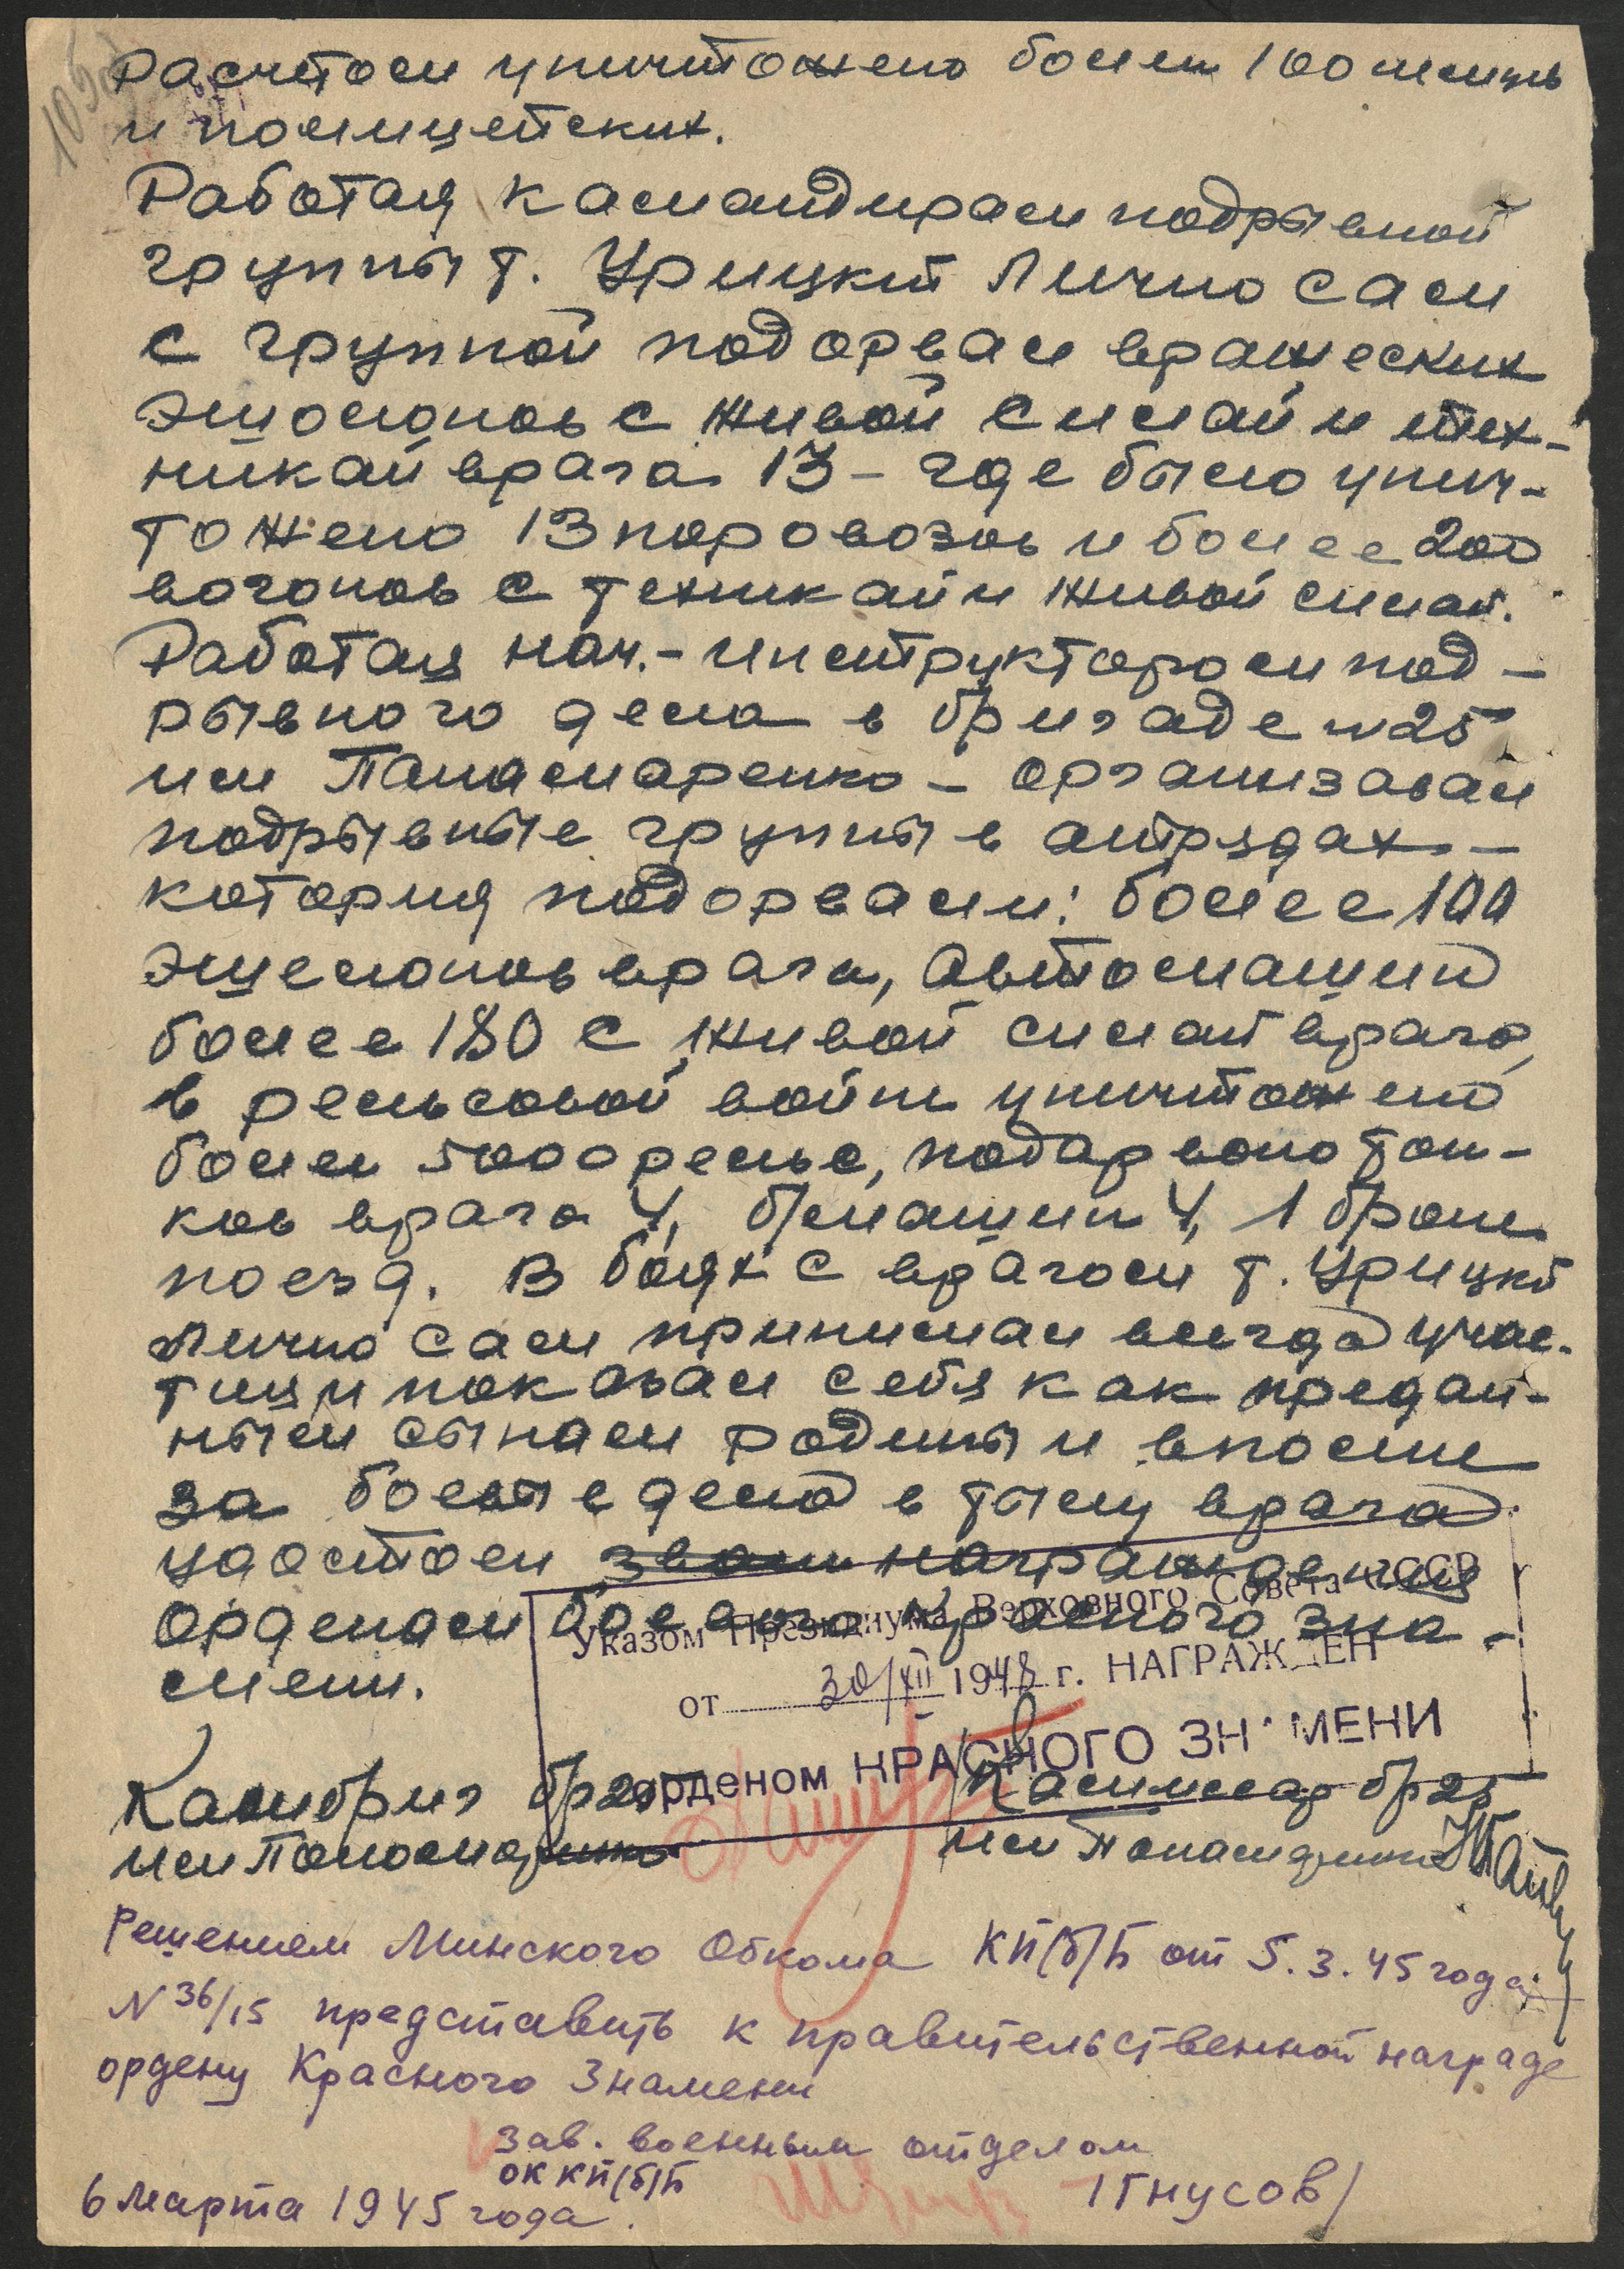 1095
Расчетом уничтожено более 100 немцев
и полицейских.
Работая камандирам подрывной
группы т. Урицкий Лично сам
с группой подорвал вражеских
эшолонов с живой силай и тех-
никай врага 13 - где было унич-
тожено 13 поровозов и более 200
вогонов с техникай и живой силай.
Работая нач.-инструктором под-
рывного дела в бригаде №25
им Панамаренко - организавал
подрывные группы в атрядах -
которыя подорвали: более 100
эшелонов врага, автомашин
более 180 с живой силай врага,
в рельсовой войне уничтожено
более 5000 рельс, подарвано тан-
ков врага 4, б/машин 4, 1 броне
поезд. В боях с врагом т. Урицкй
Лично сам принимал всегда учас-
тия и показал себя как предан-
ным сынам родины и вполне
за боевые дела в тылу врага
удостоен награждения
Орденам боевого красного зна-
мени.
Указом Президиума Верховного Совета СССР
от 30/XII 1948 г. НАГРАЖДЕН
орденом КРАСНОГО ЗНАМЕНИ
Камбриг бр 25
им Пономаренко
Камиссар бр 25
им Панамаренко
Решением Минского Обкома КП(б)Б от 5.3.45 года
N 36/15 представить к правительственной награде
ордену Красного Знамени
Зав. военным отделом
ОК КП(б)Б
/Гнусов/
6 марта 1945 года.